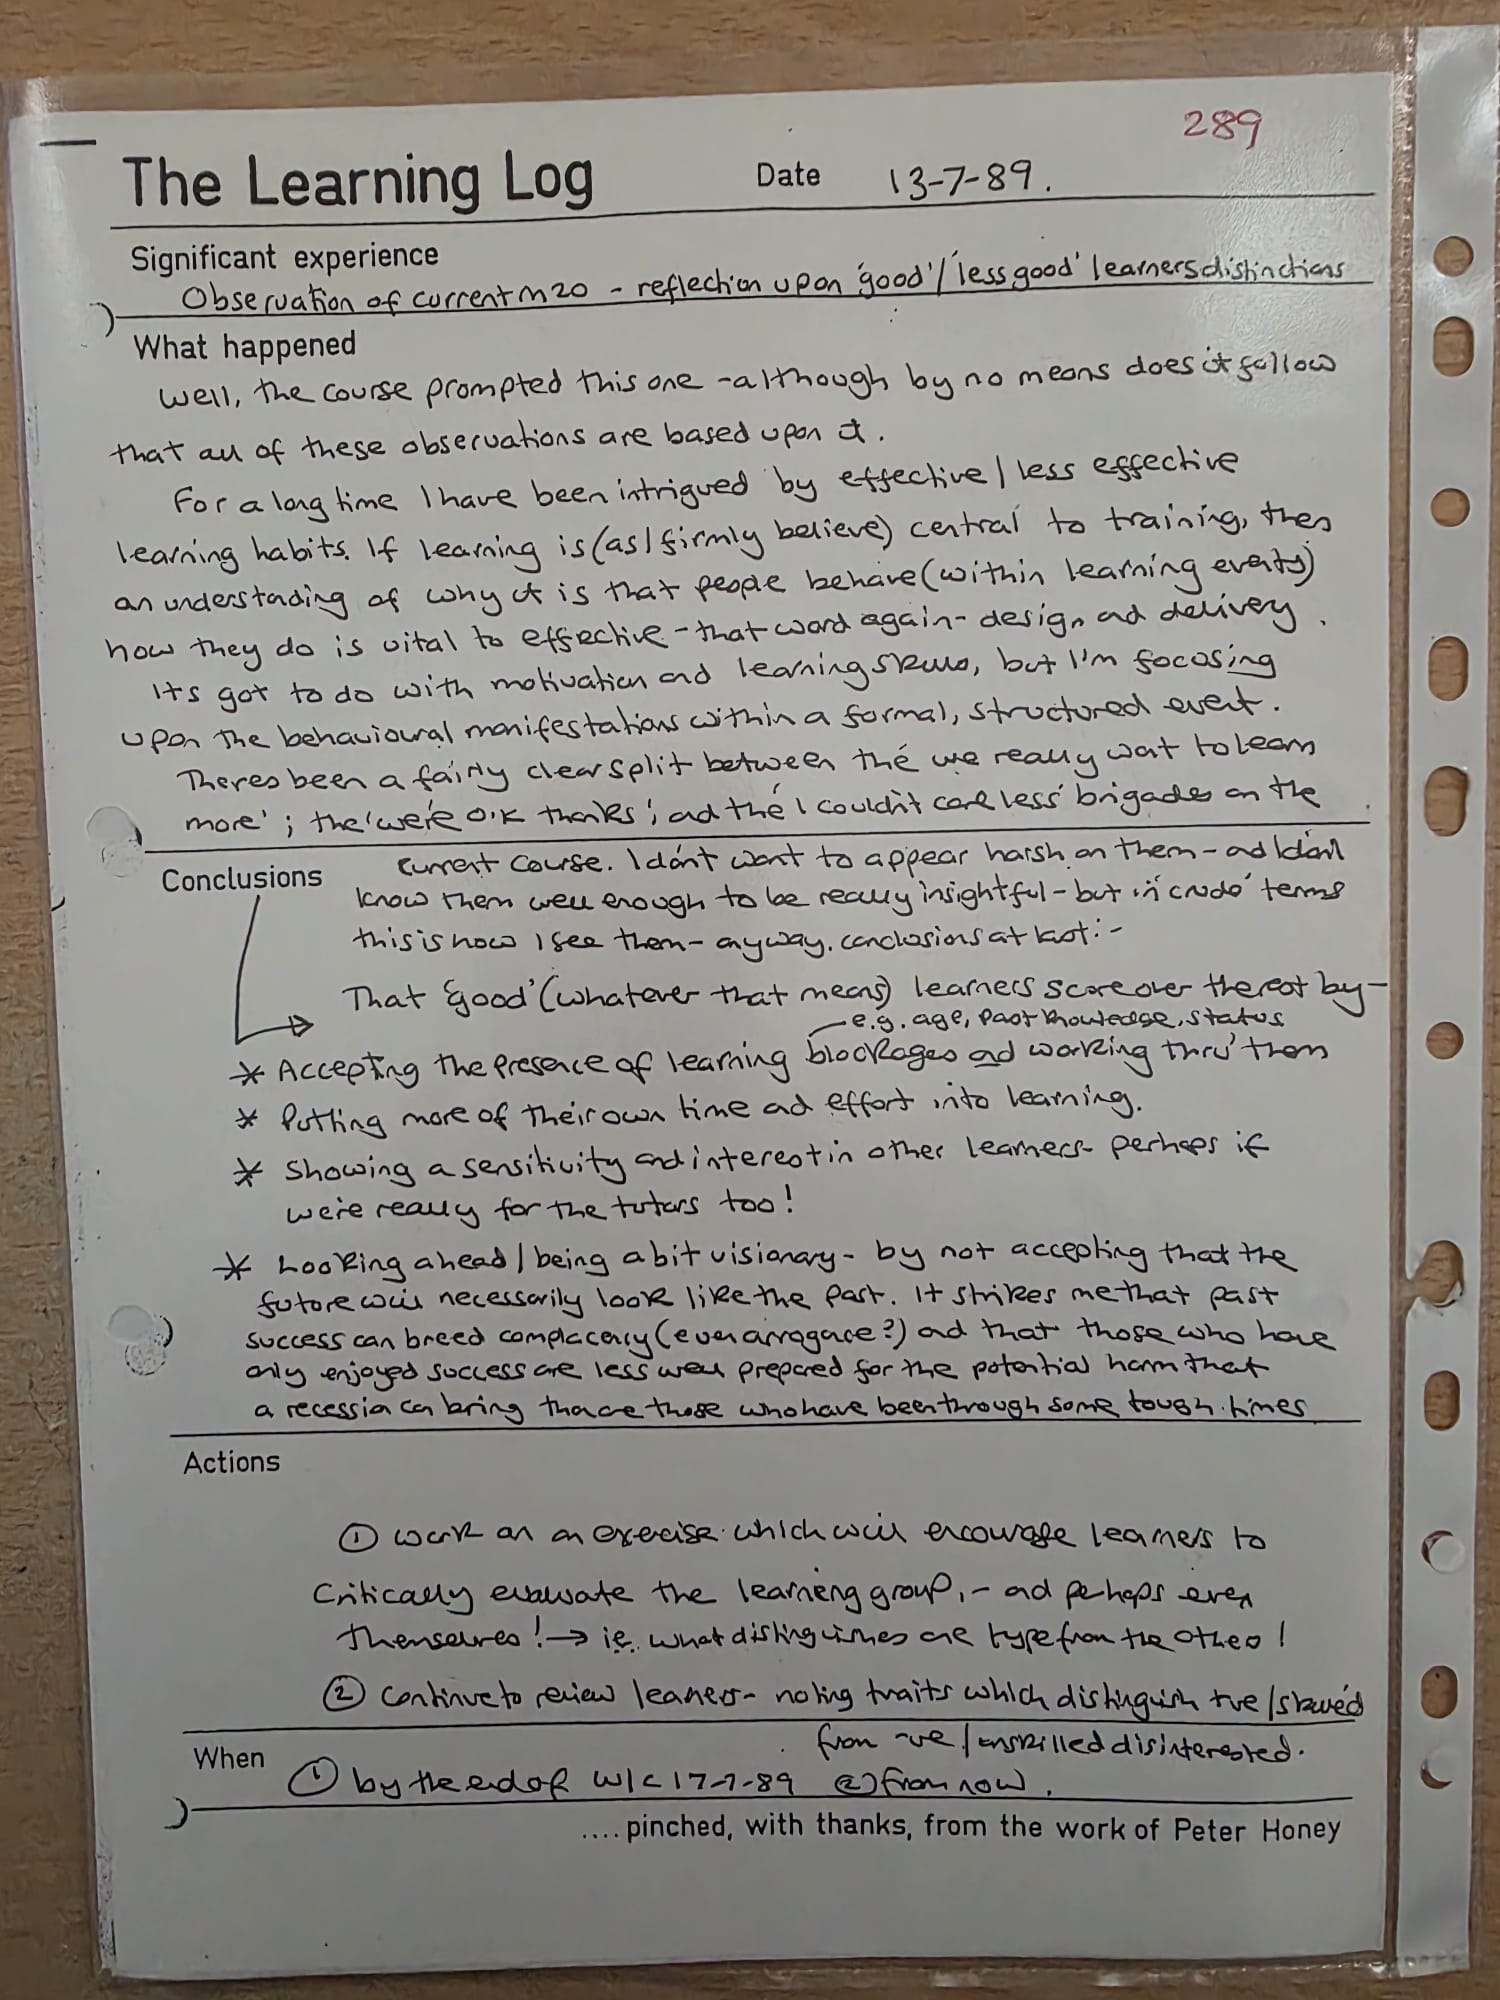 289
The Learning Log Date 13-7-89.
Significant experience
Observation of current M20 - reflection upon 'good'/'less good' learners distinctions
What happened
Well, the course prompted this one - although by no means does it follow
that all of these observations are based upon it.
For a long time I have been intrigued by effective/less effective
learning habits. If learning is (as I firmly believe) central to training, then
an understanding of why it is that people behave (within learning events)
how they do is vital to effective - that word again - design and delivery.
Its got to do with motivation and learning skills, but I'm focusing
upon the behavioural manifestations within a formal, structured event.
Theres been a fairly clear split between the 'we really want to learn
more'; the 'we're O.K thanks'; and the 'I couldn't care less' brigades on the
current course. I don't want to appear harsh on them - and I don't
Conclusions
know them well enough to be really insightful - but in 'crude' terms
this is how I see them - anyway, conclusions at last:-
That 'good' (whatever that means) learners score over the rest by -
e.g. age, past knowledge, status
* Accepting the presence of learning blockages and working thru' them
* Putting more of their own time and effort into learning.
* Showing a sensitivity and interest in other learners - perhaps if
we're really for the tutors too!
* Looking ahead/being a bit visionary - by not accepting that the
future will necessarily look like the past. It strikes me that past
success can breed complacency (even arrogance?) and that those who have
only enjoyed success are less well prepared for the potential harm that
a recession can bring than are those who have been through some tough times
Actions
① Work on an exercise which will encourage learners to
critically evaluate the learning group, - and perhaps even
themselves! → i.e. what distinguishes one type from the other!
② Continue to review learners - noting traits which distinguish +ve/skilled
from -ve/unskilled disinterested.
When
① by the end of W/C 17-7-89 ② from now.
.... pinched, with thanks, from the work of Peter Honey